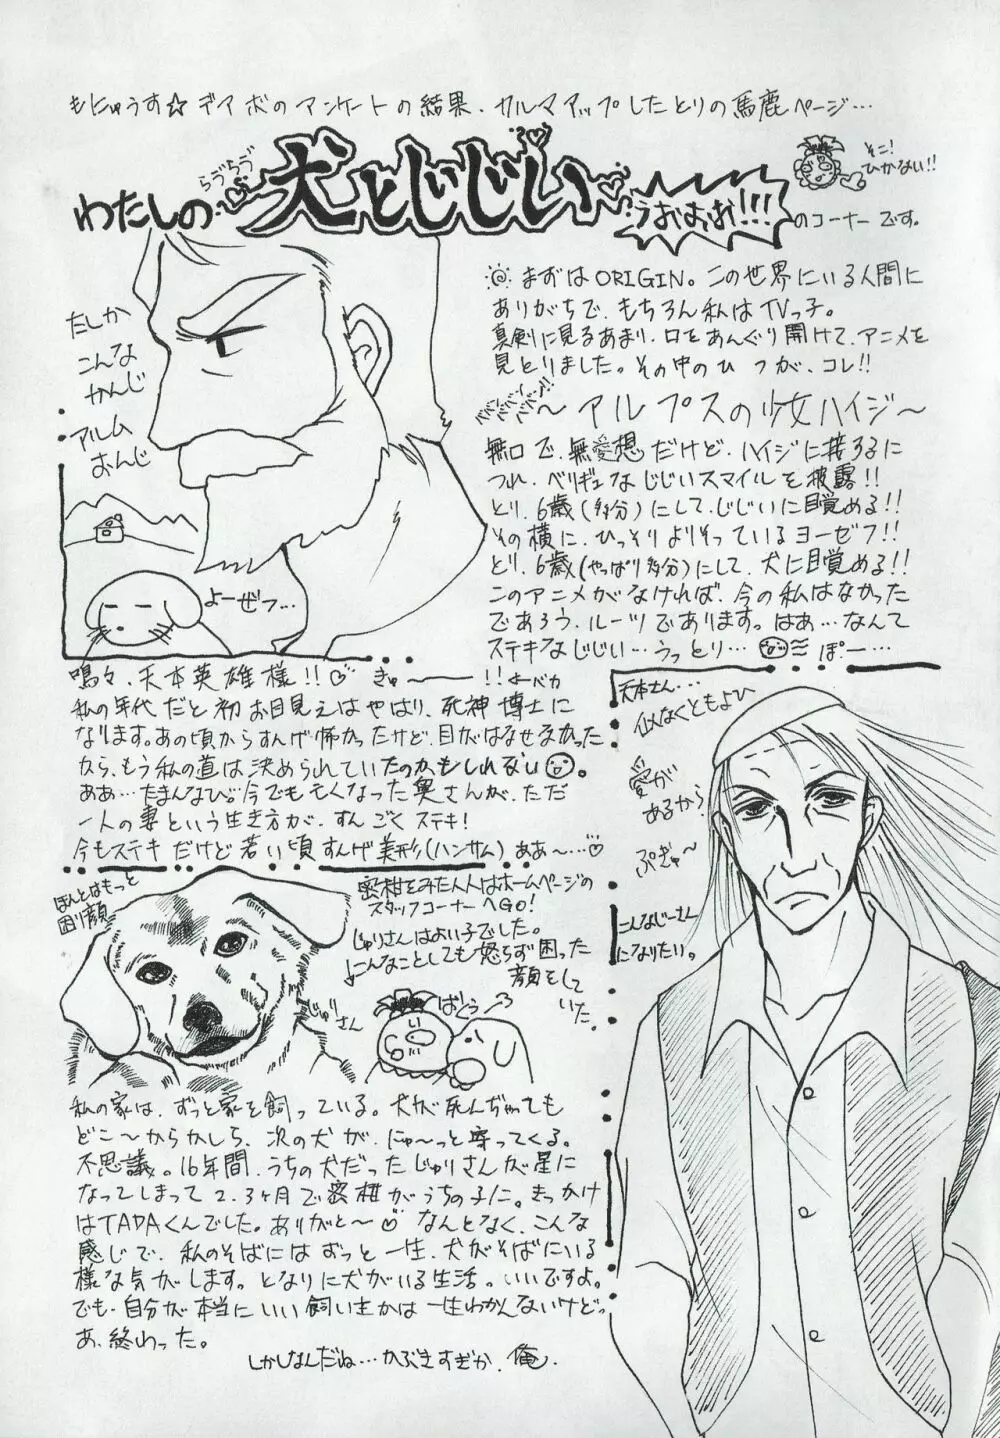 もにゅうす☆デアボのアンケートの結果、カルマアップしたとりの馬鹿ページ…
らづちづ
わたしの
犬とじじい
うおぉぉ!!!
のコーナーです。
そこ!
ひかない!!
たしか
こんな
かんじ
アルム
おんじ
よーぜフ…
まずはORIGIN。この世界にいる人間に
ありがちで、もちろん私はTVっ子。
真剣に見るあまり、口をあんぐり開けて、アニメを
見とりました。その中のひとつが、コレ!!
〜アルプスの少女ハイジ〜
無口で、無愛想だけど、ハイジに接するに
つれ、ベリギュなじじいスマイルを披露!!
とり、6歳(多分)にして、じじいに目覚める!!
その横に、ひっそりよりそっているヨーゼフ!!
とり、6歳(やっぱり多分)にして、犬に目覚める!!
このアニメがなければ、今の私はなかった
であろう、ルーツであります。はあ…なんて
ステキなじじい…うっとり… ぽー…
鳴々、天本英雄様!! きゅ〜――!!よーべか
私の年代だと初お目見えはやはり、死神博士に
なります。あの頃からすんげ怖かったけど、目がはなせなかった
から、もう私の道は決められていたのかもしれない。
ああ…たまんなひ。今でも亡くなった奥さんが、ただ
一人の妻という生き方が、すんごくステキ!
今もステキだけど若い頃すんげ美形(ハンサム)ああ〜…
天本さん…
似なくともよひ
愛が
あるから
ぷぎゅ〜
こんなじーさん
になりたい。
ほんとはもっと
困り顔
蜜柑をみた人はホームページの
スタッフコーナーへGO!
じゅりさんはよい子でした。
こんなことしても怒らず困った
顔をして
いた。
じゅりさん
ばくぅ
私の家は、ずっと家を飼っている。犬が死んぢゃっても
どこ〜からかしら、次の犬が、にゅ〜っと寄ってくる。
不思議。16年間、うちの犬だったじゅりさんが星に
なってしまって2、3ヶ月で蜜柑がうちの子に。きっかけ
はTADAくんでした。ありがと〜 なんとなく、こんな
感じで、私のそばにはずっと一生、犬がそばにいる
様な気がします。となりに犬がいる生活。いいですよ。
でも、自分が本当にいい飼い主かは一生わかんないけどっ
あ、終わった。
しかしなんだね…かぶきすぎか、俺。